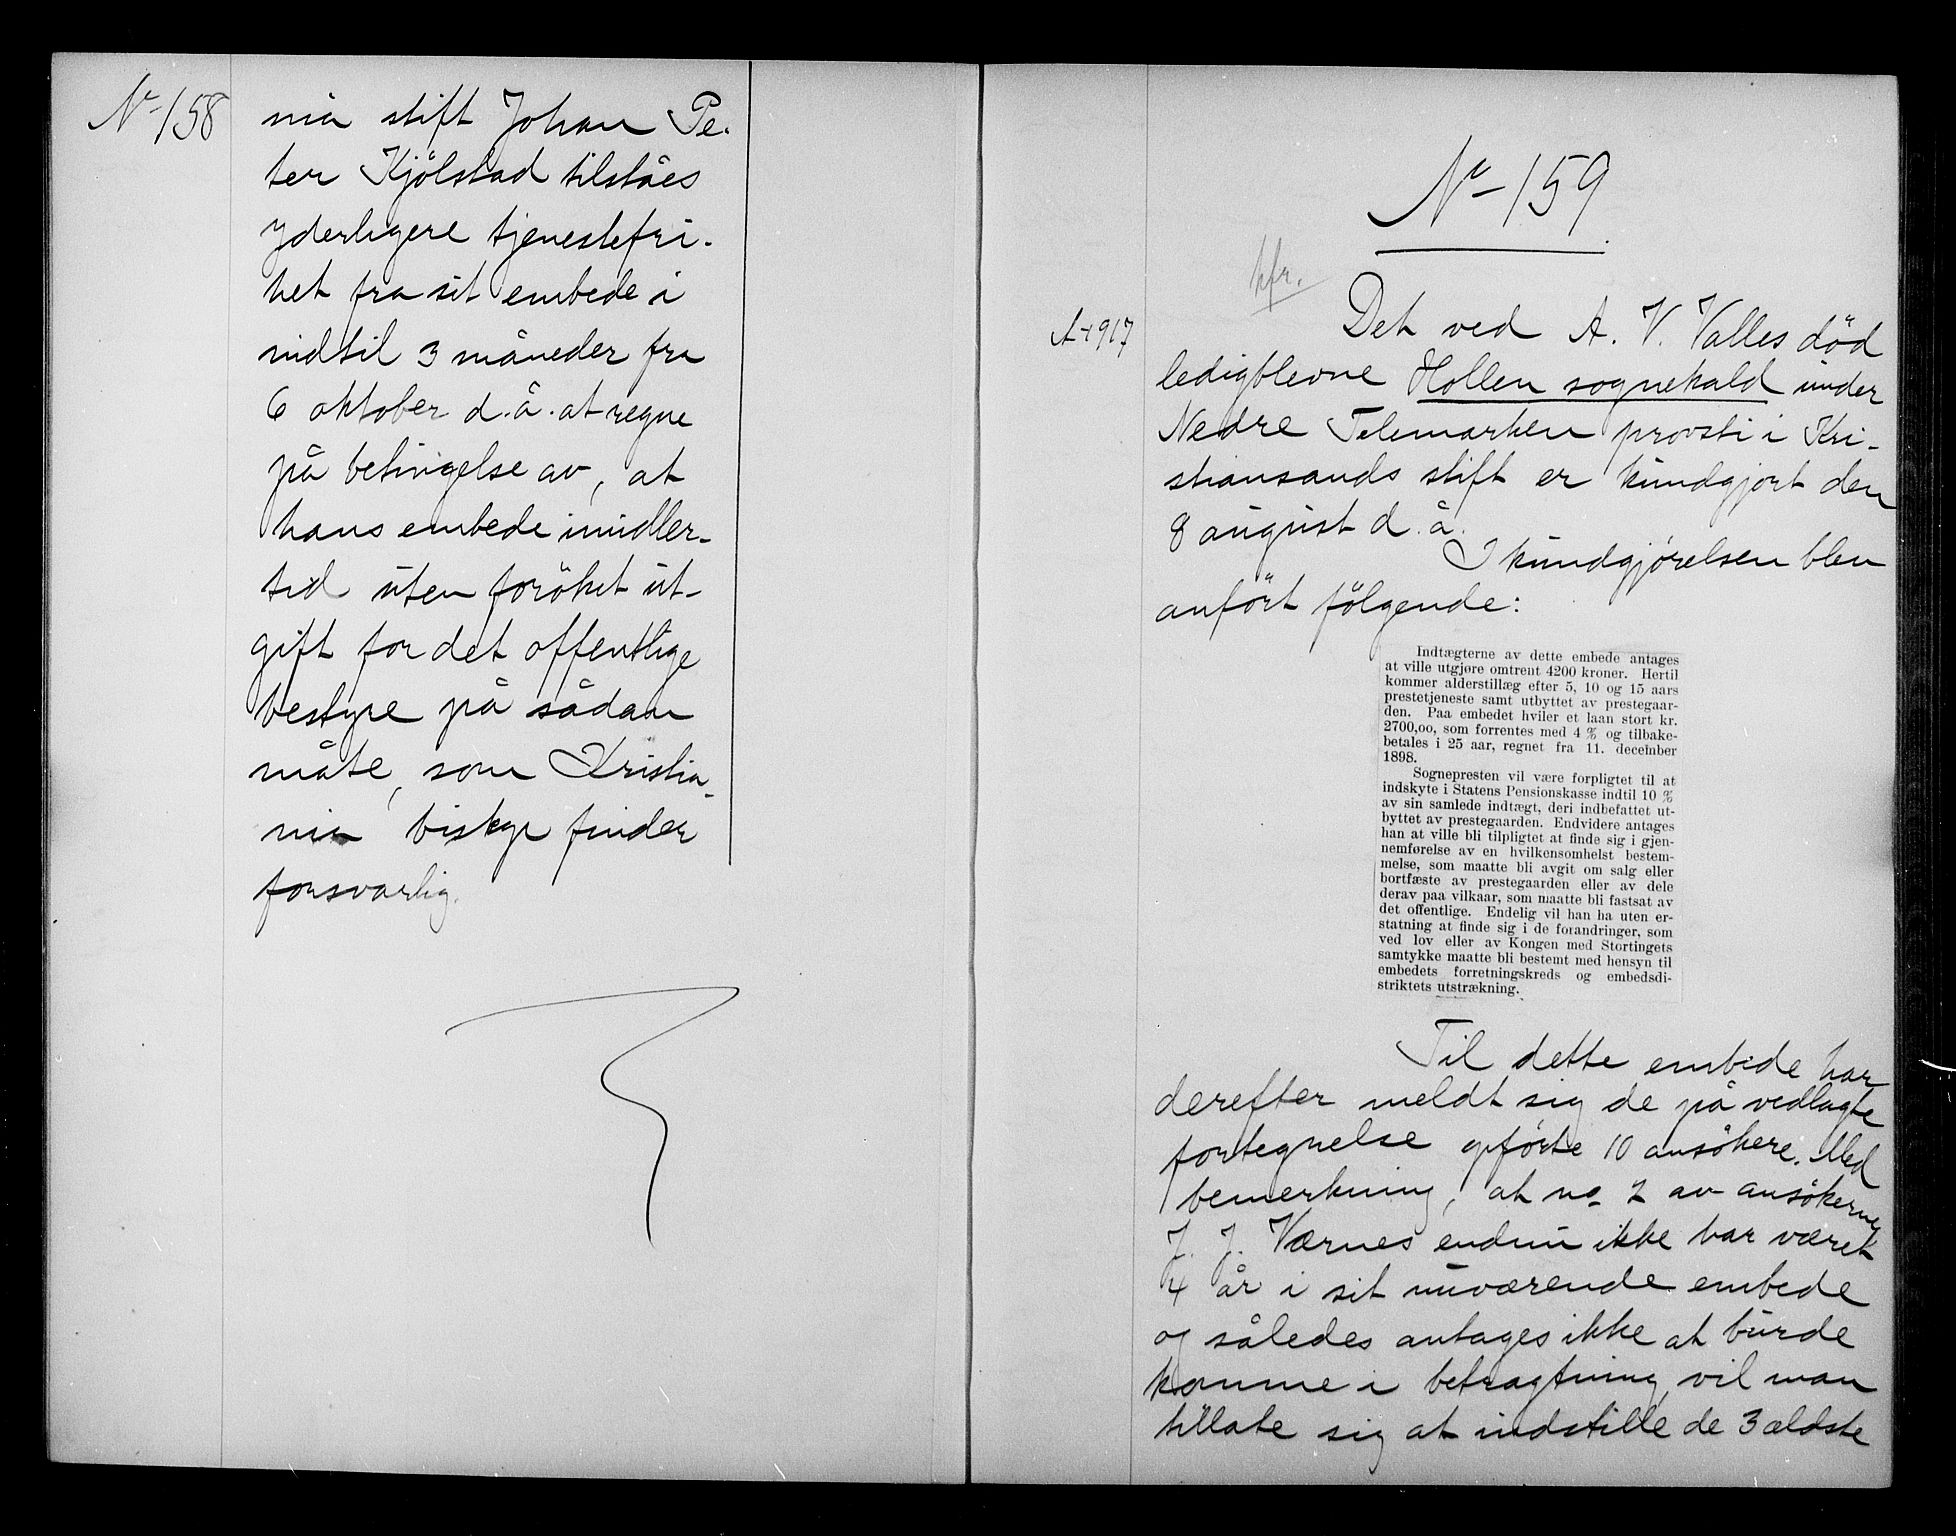 No 158
nia stift Johan Pe-
ter Kjölstad tilståes
yderligere tjenestefri-
het fra sit embede i
indtil 3 måneder fra
6 oktober d.å. at regne
på betingelse av, at
hans embede imidler-
tid uten forøket ut-
gift for det offentlige
bestyre på sådan
måte, som Kristia-
nia biskop finder
forsvarlig.
No 159
kfr.
A 1917
Det ved A. V. Valles död
ledigblevne Hollen sognekald under
Nedre Telemarken provsti i Kri-
stiansands stift er kundgjort den
8 august d.å.
I kundgjørelsen blev
anført følgende:
Indtægterne av dette embede antages
at ville utgjøre omtrent 4200 kroner. Hertil
kommer alderstillæg efter 5, 10 og 15 aars
prestetjeneste samt utbyttet av prestegaar-
den. Paa embedet hviler et laan stort kr.
2700,00, som forrentes med 4 % og tilbake-
betales i 25 aar, regnet fra 11. december
1898.
Sognepresten vil være forpligtet til at
indskyte i Statens Pensionskasse indtil 10 %
av sin samlede indtægt, deri indbefattet ut-
byttet av prestegaarden. Endvidere antages
han at ville bli tilpligtet at finde sig i gjen-
nemførelse av en hvilkensomhelst bestem-
melse, som maatte bli avgit om salg eller
bortfæste av prestegaarden eller av dele
derav paa vilkaar, som maatte bli fastsat av
det offentlige. Endelig vil han ha uten er-
statning at finde sig i de forandringer, som
ved lov eller av Kongen med Stortingets
samtykke maatte bli bestemt med hensyn til
embedets forretningskreds og embedsdi-
striktets utstrækning.
Til dette embede har
derefter meldt sig de på vedlagte
fortegnelse opførte 10 ansøkere. Med
bemerkning, at no 2 av ansøkerne
J. J. Værnes endnu ikke har været
4 år i sit nuværende embede
og således antages ikke at burde
komme i betragtning, vil man
tillate sig at indstille de 3 ældste